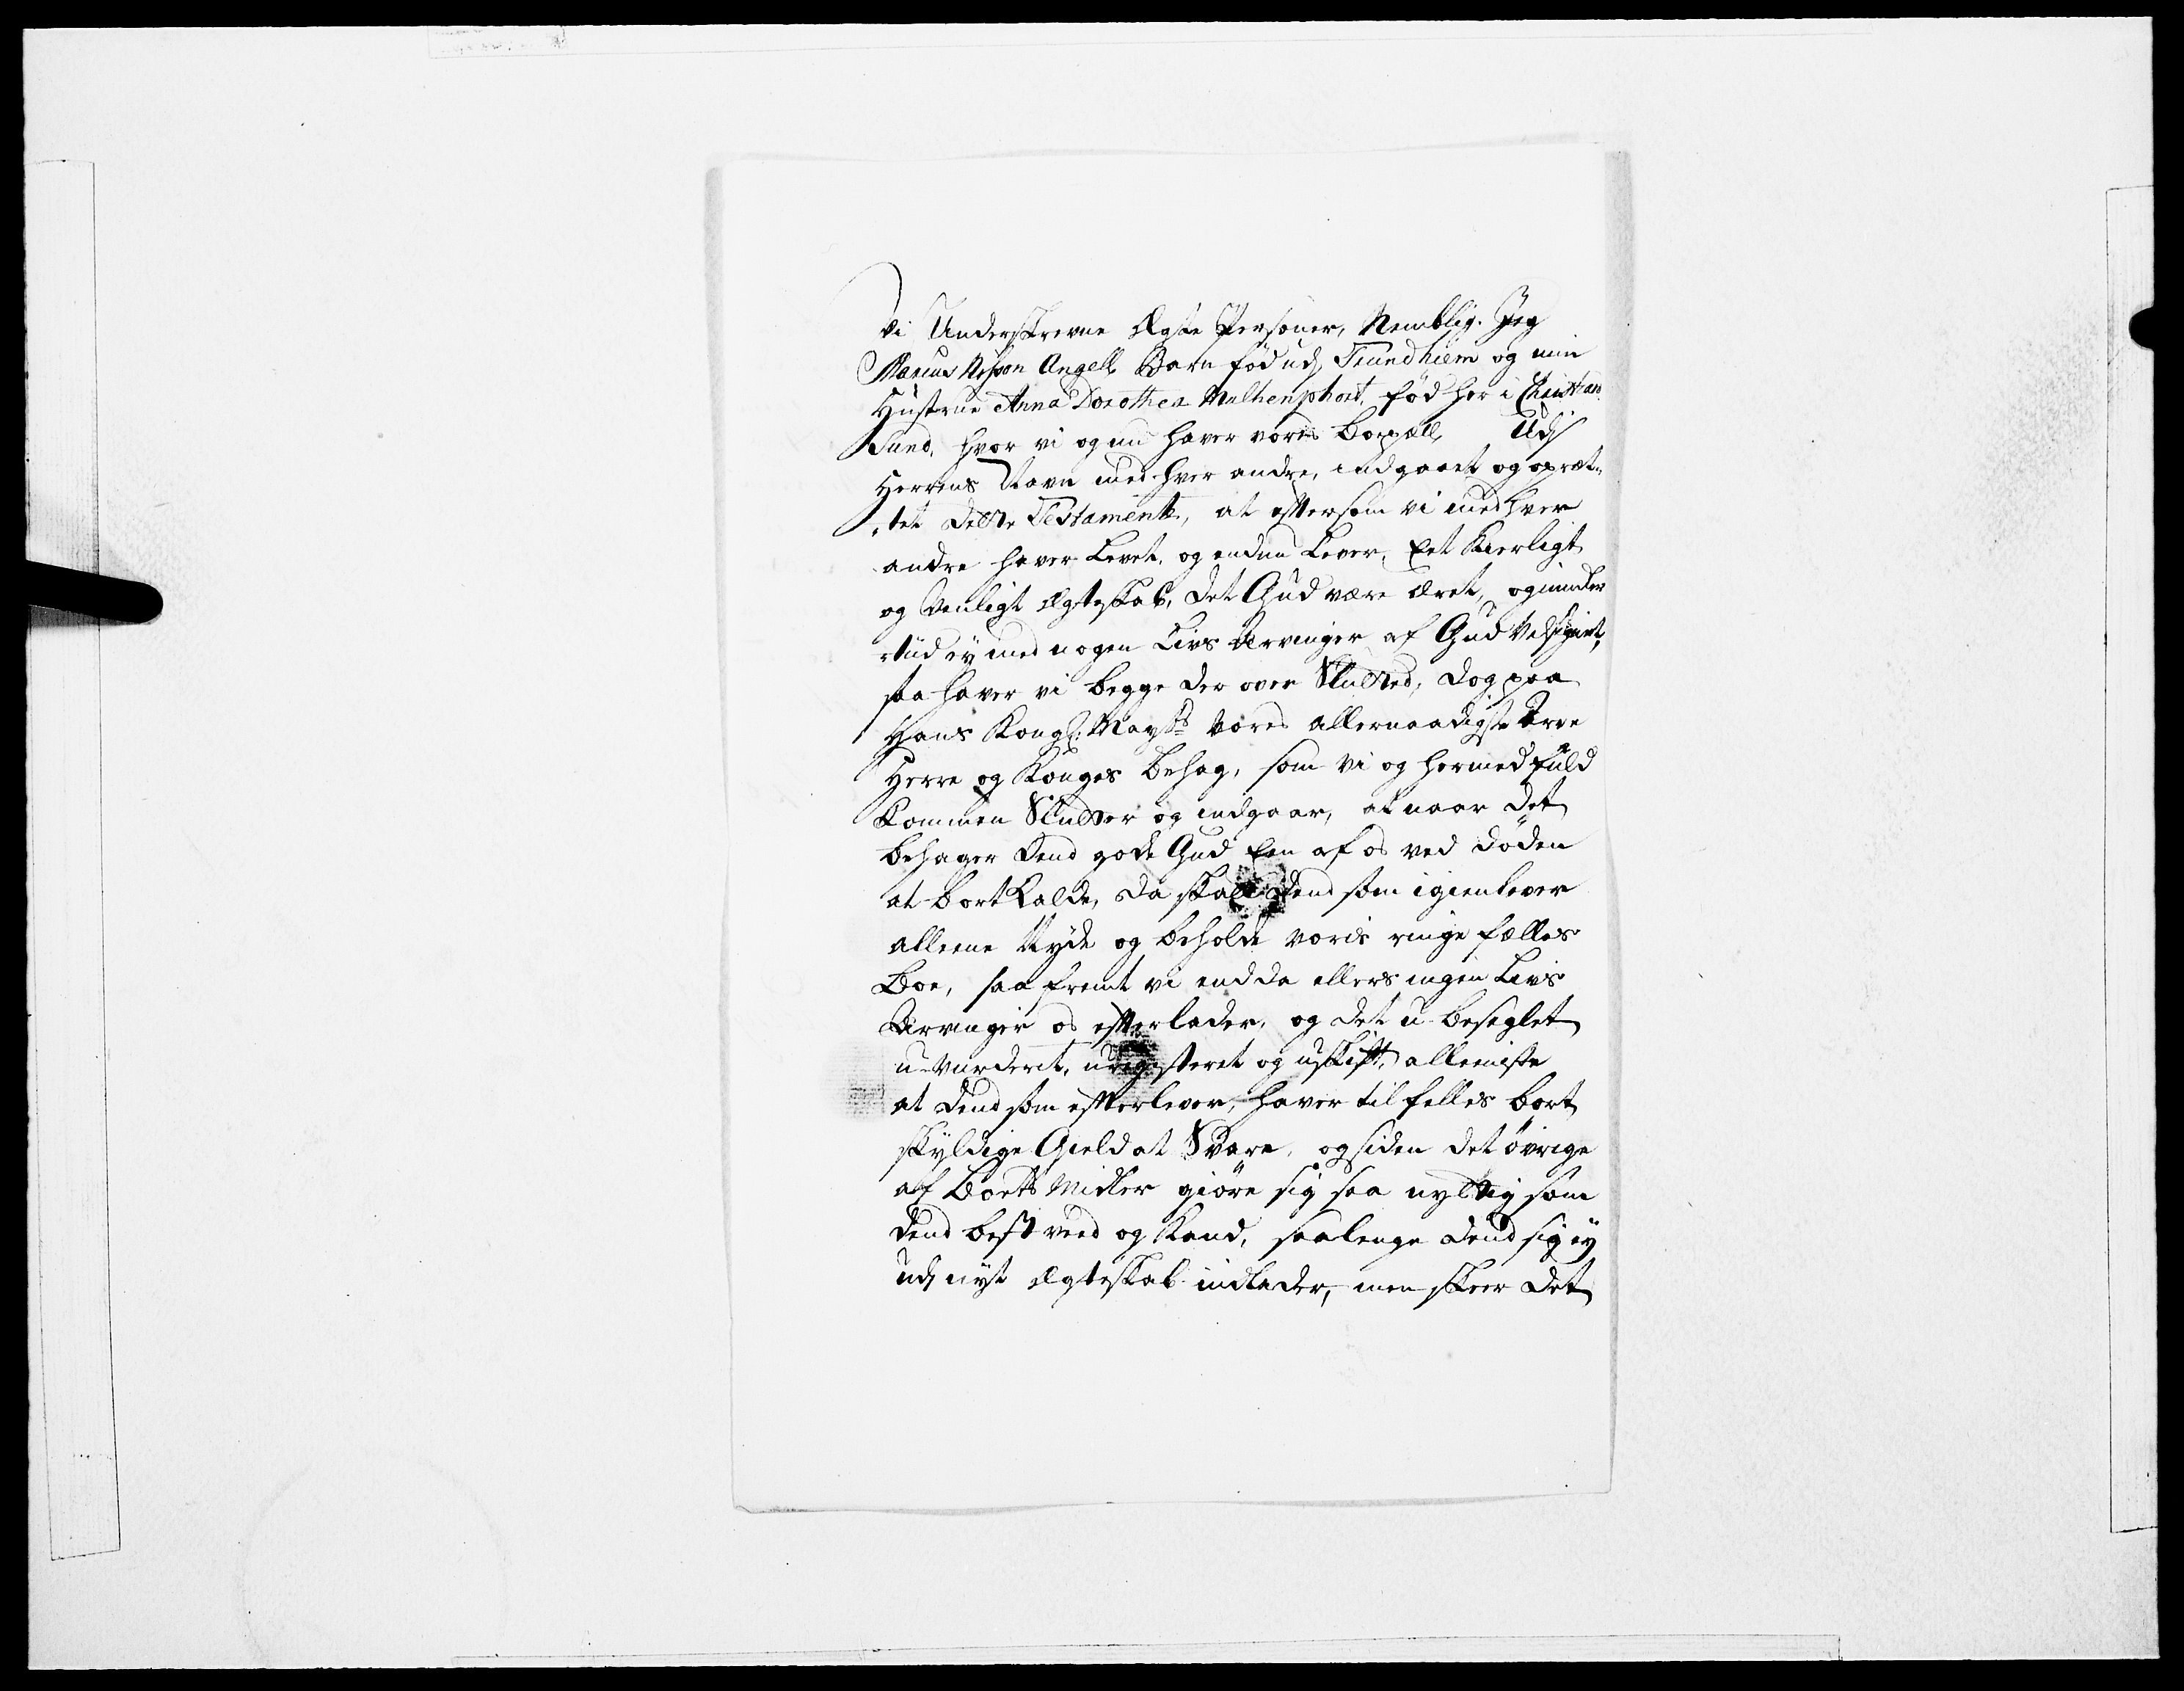 Vi Underskrevne Ægte Personer, Nemblig. Jeg
Marcus Nisson Angell, Barn föd udj Trundhiem og min
Hustrue Anna Dorothea Mulhenphort, föd her i Christian
Sund, hvor vi og nu haver voris Boepæll, Udj
Herrens Navn med hver andre, indgaaet og opræt-
-tet dette Testamente, at eftersom vi med hver
andre haver Levet, og endnu Lever, Eet Kierligt
og Venligt Ægteskab, det Gud være æret, og
ey med nogen Livs Arvinger af Gud Velsignet,
saa haver vi begge der over Sluttet, dog paa
Hans Kongl: Mayts Vores allernaadigste Arve
Herre og Konges behag, som vi og hermed fuld
Kommen Slutter og indgaar, at naar det
behager dend gode Gud Een af os ved döden
at bortkalde, da skall dend som igienlever
alleene Nyde og beholde voris ringe fælles
Boe, saa fremt vi endda ellers ingen Livs
Arvinger os efterlader, og det u-beseglet
u-vurderit, uregisteret og uskift, alleniste
at dend som efterlever, haver til felles bort
skyldige Gield at Svare, og siden det övrige
af Boets Midler giöre sig saa nyttig som
dend best veed og Kand, saalenge dend sig ey
udj nyt Ægteskab indlader, men skeer det